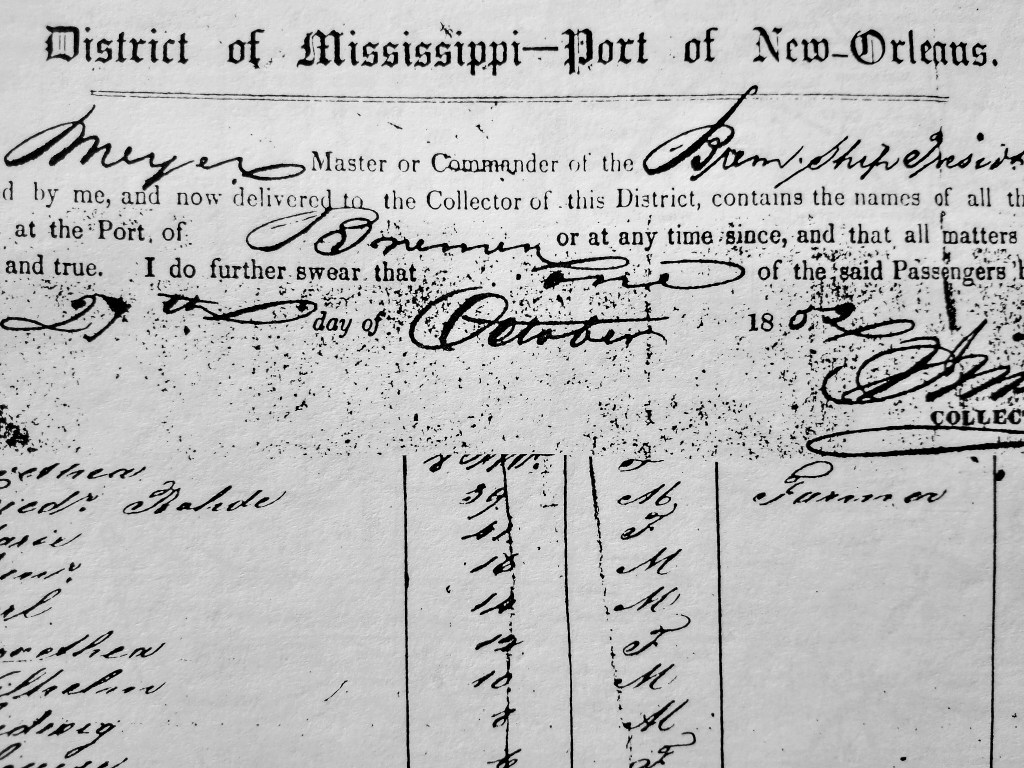 District of Mississippi—Port of New-Orleans.
Meyer Master or Commander of the Brem. Ship Presid
d by me, and now delivered to the Collector of this District, contains the names of all th
at the Port, of Bremen or at any time since, and that all matters
and true. I do further swear that one of the said Passengers h
27th day of October 1852
COLLEC
rethea F
ied. Rohde 39 M Farmer
arie 41 F
M
rl 14 M
orethea 12 F
ilhelm 10 M
udwig 8 M
6 F